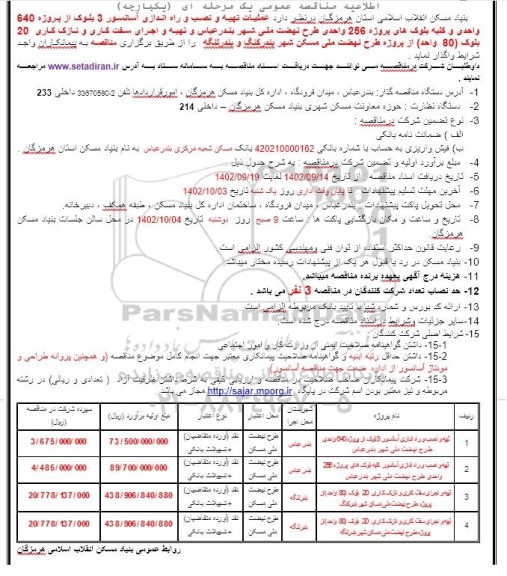 اطلاعیه مناقصه عمومی یک مرحله ای (یکپارچه)
بنیاد مسکن انقلاب اسلامی استان هرمزگان درنظر دارد عملیات تهیه و نصب و راه اندازی آسانسور 3 بلوک از پروژه 640
واحدی و کلیه بلوک های پروژه 256 واحدی طرح نهضت ملی شهر بندرعباس و تهیه و اجرای سفت کاری و نازک کاری 20
بلوک (80 واحد) از پروژه طرح نهضت ملی مسکن شهر بندرکنگ و بندرلنگه را از طریق برگزاری مناقصه به پیمانکاران واجد
شرایط واگذار نماید .
داوطلبان شرکت درمناقصه می توانند جهت دریافت اسناد مناقصه به سامانه ستاد به آدرس www.setadiran.ir مراجعه
نمایند .
1- آدرس دستگاه مناقصه گذار: بندرعباس ، میدان فرودگاه ، اداره کل بنیاد مسکن هرمزگان ، امورقراردادها تلفن 2-33670580 داخلی 233
2- دستگاه نظارت : حوزه معاونت مسکن شهری بنیاد مسکن هرمزگان – داخلی 214
3- نوع تضمین شرکت درمناقصه :
الف ) ضمانت نامه بانکی
ب) فیش واریزی به حساب با شماره بانکی 420210000162 بانک مسکن شعبه مرکزی بندرعباس به نام بنیاد مسکن استان هرمزگان .
4- مبلغ برآورد اولیه و تضمین شرکت درمناقصه : به شرح جدول ذیل
5- تاریخ دریافت اسناد مناقصه : از تاریخ 1402/09/14 لغایت 1402/09/19
6- آخرین مهلت تسلیم پیشنهادات : تا پایان وقت اداری روز یک شنبه تاریخ 1402/10/03
7- محل تحویل پاکت پیشنهادات : بندرعباس ، میدان فرودگاه ، ساختمان اداره کل بنیاد مسکن ، طبقه همکف ، دبیرخانه.
8- تاریخ و ساعت و مکان بازگشایی پاکت ها : ساعت 9 صبح روز دوشنبه تاریخ 1402/10/04 در محل سالن جلسات بنیاد مسکن
هرمزگان
9- رعایت قانون حداکثر استفاده از توان فنی ومهندسی کشور الزامی است
10- بنیاد مسکن در رد یا قبول هر یک از پیشنهادات رسیده مختار میباشد
11- هزینه درج آگهی بعهده برنده مناقصه میباشد.
12- حد نصاب تعداد شرکت کنندگان در مناقصه 3 نفر می باشد .
13- ارائه کد بورس و شماره شبا با تایید بانک مربوطه الزامی است
14- سایر جزئیات وشرایط در اسناد مناقصه درج شده است .
15- شرایط اصلی شرکت کنندگان :
15-1- داشتن گواهینامه صلاحیت ایمنی از وزارت کار و امور اجتماعی
15-2- داشتن حداقل رتبه ابنیه و گواهینامه صلاحیت پیمانکاری معتبر جهت انجام کامل موضوع مناقصه (و همچنین پروانه طراحی و
مونتاژ آسانسور از اداره صنعت جهت مناقصه آسانسور)
15-3- شرکت پیمانکاران صاحب صلاحیت در مناقصه و ارزیابی کیفی به شرط داشتن ظرفیت آزاد ( تعدادی و ریالی) در رشته
مربوطه و نیز معتبر بودن اسم شرکت در پایگاه http://sajar.mporg.ir مجاز می باشد
ردیف نام پروژه شهرستان محل اجرا محل اعتبار نوع اعتبار مبلغ اولیه برآورد (ریال) سپرده شرکت در مناقصه (ریال)
1 تهیه و نصب و راه اندازی آسانسور 3 بلوک از پروژه 640 واحدی طرح نهضت ملی شهر بندرعباس بندرعباس طرح نهضت ملی مسکن نقد (آورده متقاضیان) +تسهیلات بانکی 73/500/000/000 3/675/000/000
2 تهیه و نصب و راه اندازی آسانسور کلیه بلوک های پروژه 256 واحدی طرح نهضت ملی شهر بندرعباس بندرعباس طرح نهضت ملی مسکن نقد (آورده متقاضیان) +تسهیلات بانکی 89/700/000/000 4/485/000/000
3 تهیه و اجرای سفت کاری و نازک کاری 20 بلوک (80 واحد) از پروژه طرح نهضت ملی مسکن شهر بندرکنگ بندرلنگه طرح نهضت ملی مسکن نقد (آورده متقاضیان) +تسهیلات بانکی 438/906/840/880 20/778/137/000
4 تهیه و اجرای سفت کاری و نازک کاری 20 بلوک (80 واحد) از پروژه طرح نهضت ملی مسکن شهر بندرلنگه بندرلنگه طرح نهضت ملی مسکن نقد (آورده متقاضیان) +تسهیلات بانکی 438/906/840/880 20/778/137/000
روابط عمومی بنیاد مسکن انقلاب اسلامی هرمزگان